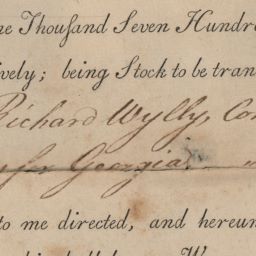 ne Thouſand Seven Hundre
ively; being Stock to be tran
Richard Wylly, Com
for Georgia
to me directed, and hereun